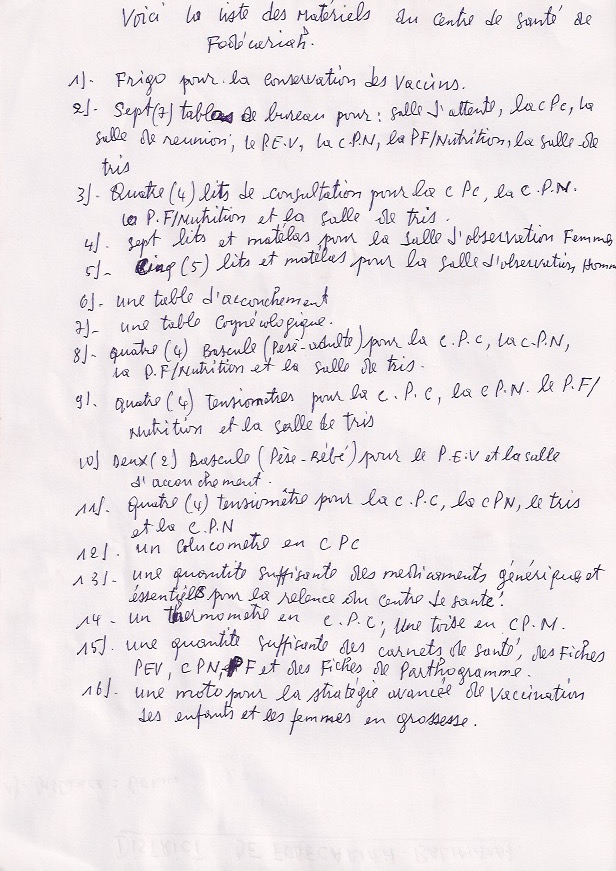 Voici la liste des Matériels du centre de santé de
Fodécariah.
1)- Frigo pour la conservation des Vaccins.
2)- Sept (7) tables de bureau pour : salle d'attente, la CPC, la
salle de reunion, le P.E.V, la C.P.N, la PF/Nutrition, la salle de
tris
3)- Quatre (4) lits de consultation pour la C PC, la C.P.N.
la P.F/Nutrition et la salle de tris.
4)- sept lits et matélas pour la salle d'observation Femmes
5)- Cinq (5) lits et matélas pour la salle d'observation Homm
6)- une table d'accouchement
7)- une table Gynécologique.
8)- quatre (4) Bascule (Pèse-adulte) pour la C.P.C, la C.P.N,
la P.F/Nutrition et la salle de tris.
9)- quatre (4) tensiometres pour la C.P.C, la C PN. le P.F/
Nutrition et la salle de tris
10) Deux (2) Bascule (Pèse-Bébé) pour le P.E.V et la salle
d'accouchement.
11)- quatre (4) tensiomètre pour la C.P.C, la CPN, le tris
et la C.P.N
12)- un Glucometre en C PC
13)- une quantite suffisante des medicaments génériques et
éssentiels pour la relence du centre de santé.
14 - un thermometre en C.P.C; Une toise en CP.N.
15)- une quantite suffisante des carnets de santé, des Fiches
PEV, CPN, PF et des Fiches de Parthogramme.
16)- une moto pour la stratégie avancée de Vaccination
des enfants et les femmes en grossesse.